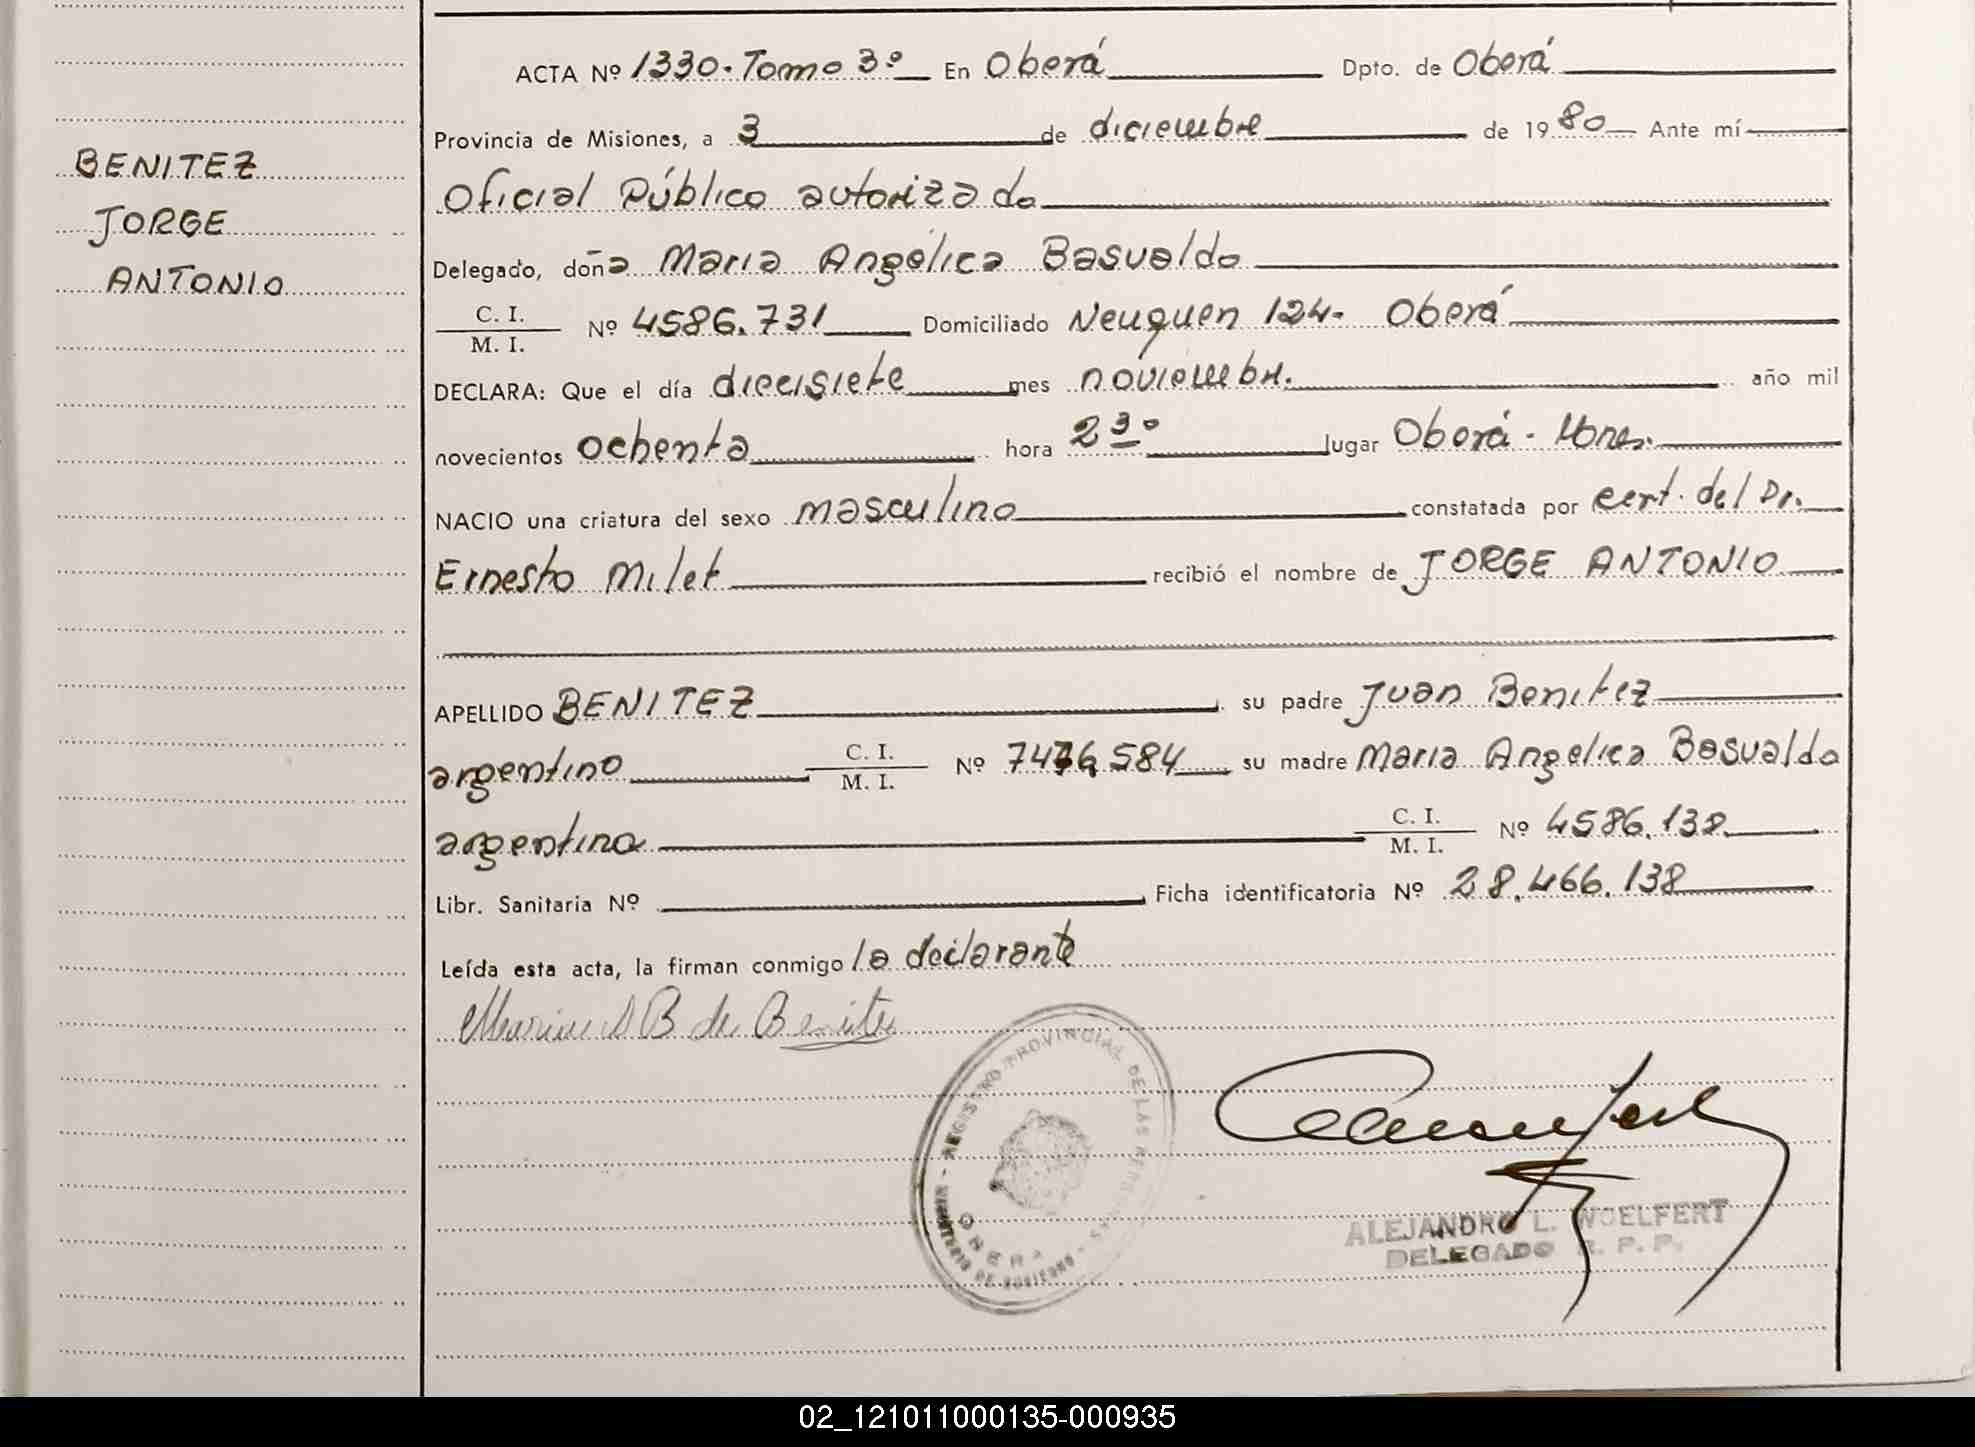 BENITEZ
JORGE
ANTONIO
ACTA Nº 1330. Tomo 3º En Oberá Dpto. de Oberá
Provincia de Misiones, a 3 de diciembre de 1980 Ante mí
Oficial Público autorizado
Delegado, doña Maria Angélica Basualdo
C. I.
M. I. Nº 4586.731 Domiciliado Neuquen 124. Oberá
DECLARA: Que el día diecisiete mes noviembre. año mil
novecientos ochenta hora 23º lugar Oberá - Mnes.
NACIO una criatura del sexo masculino constatada por cert. del Dr.
Ernesto Milet recibió el nombre de JORGE ANTONIO
APELLIDO BENITEZ su padre Juan Benitez
argentino C. I.
M. I. Nº 584 su madre Maria Angelica Basualdo
argentina C. I.
M. I. Nº 4586.138
Libr. Sanitaria Nº Ficha identificatoria Nº 28.466.138
Leída esta acta, la firman conmigo la declarante
Maria A B de Benitez
REGISTRO PROVINCIAL DE LAS PERSONAS - MINISTERIO DE GOBIERNO -
OBERA
ALEJANDRO L. WOELFERT
DELEGADO R. P. P.
02_121011000135-000935